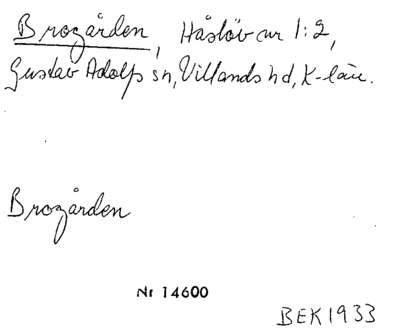 Brogården, Håslöv nr 1:2,
Gustav Adolfs sn, Villands hd, K-län.
Brogården
Nr 14600
BEK 1933